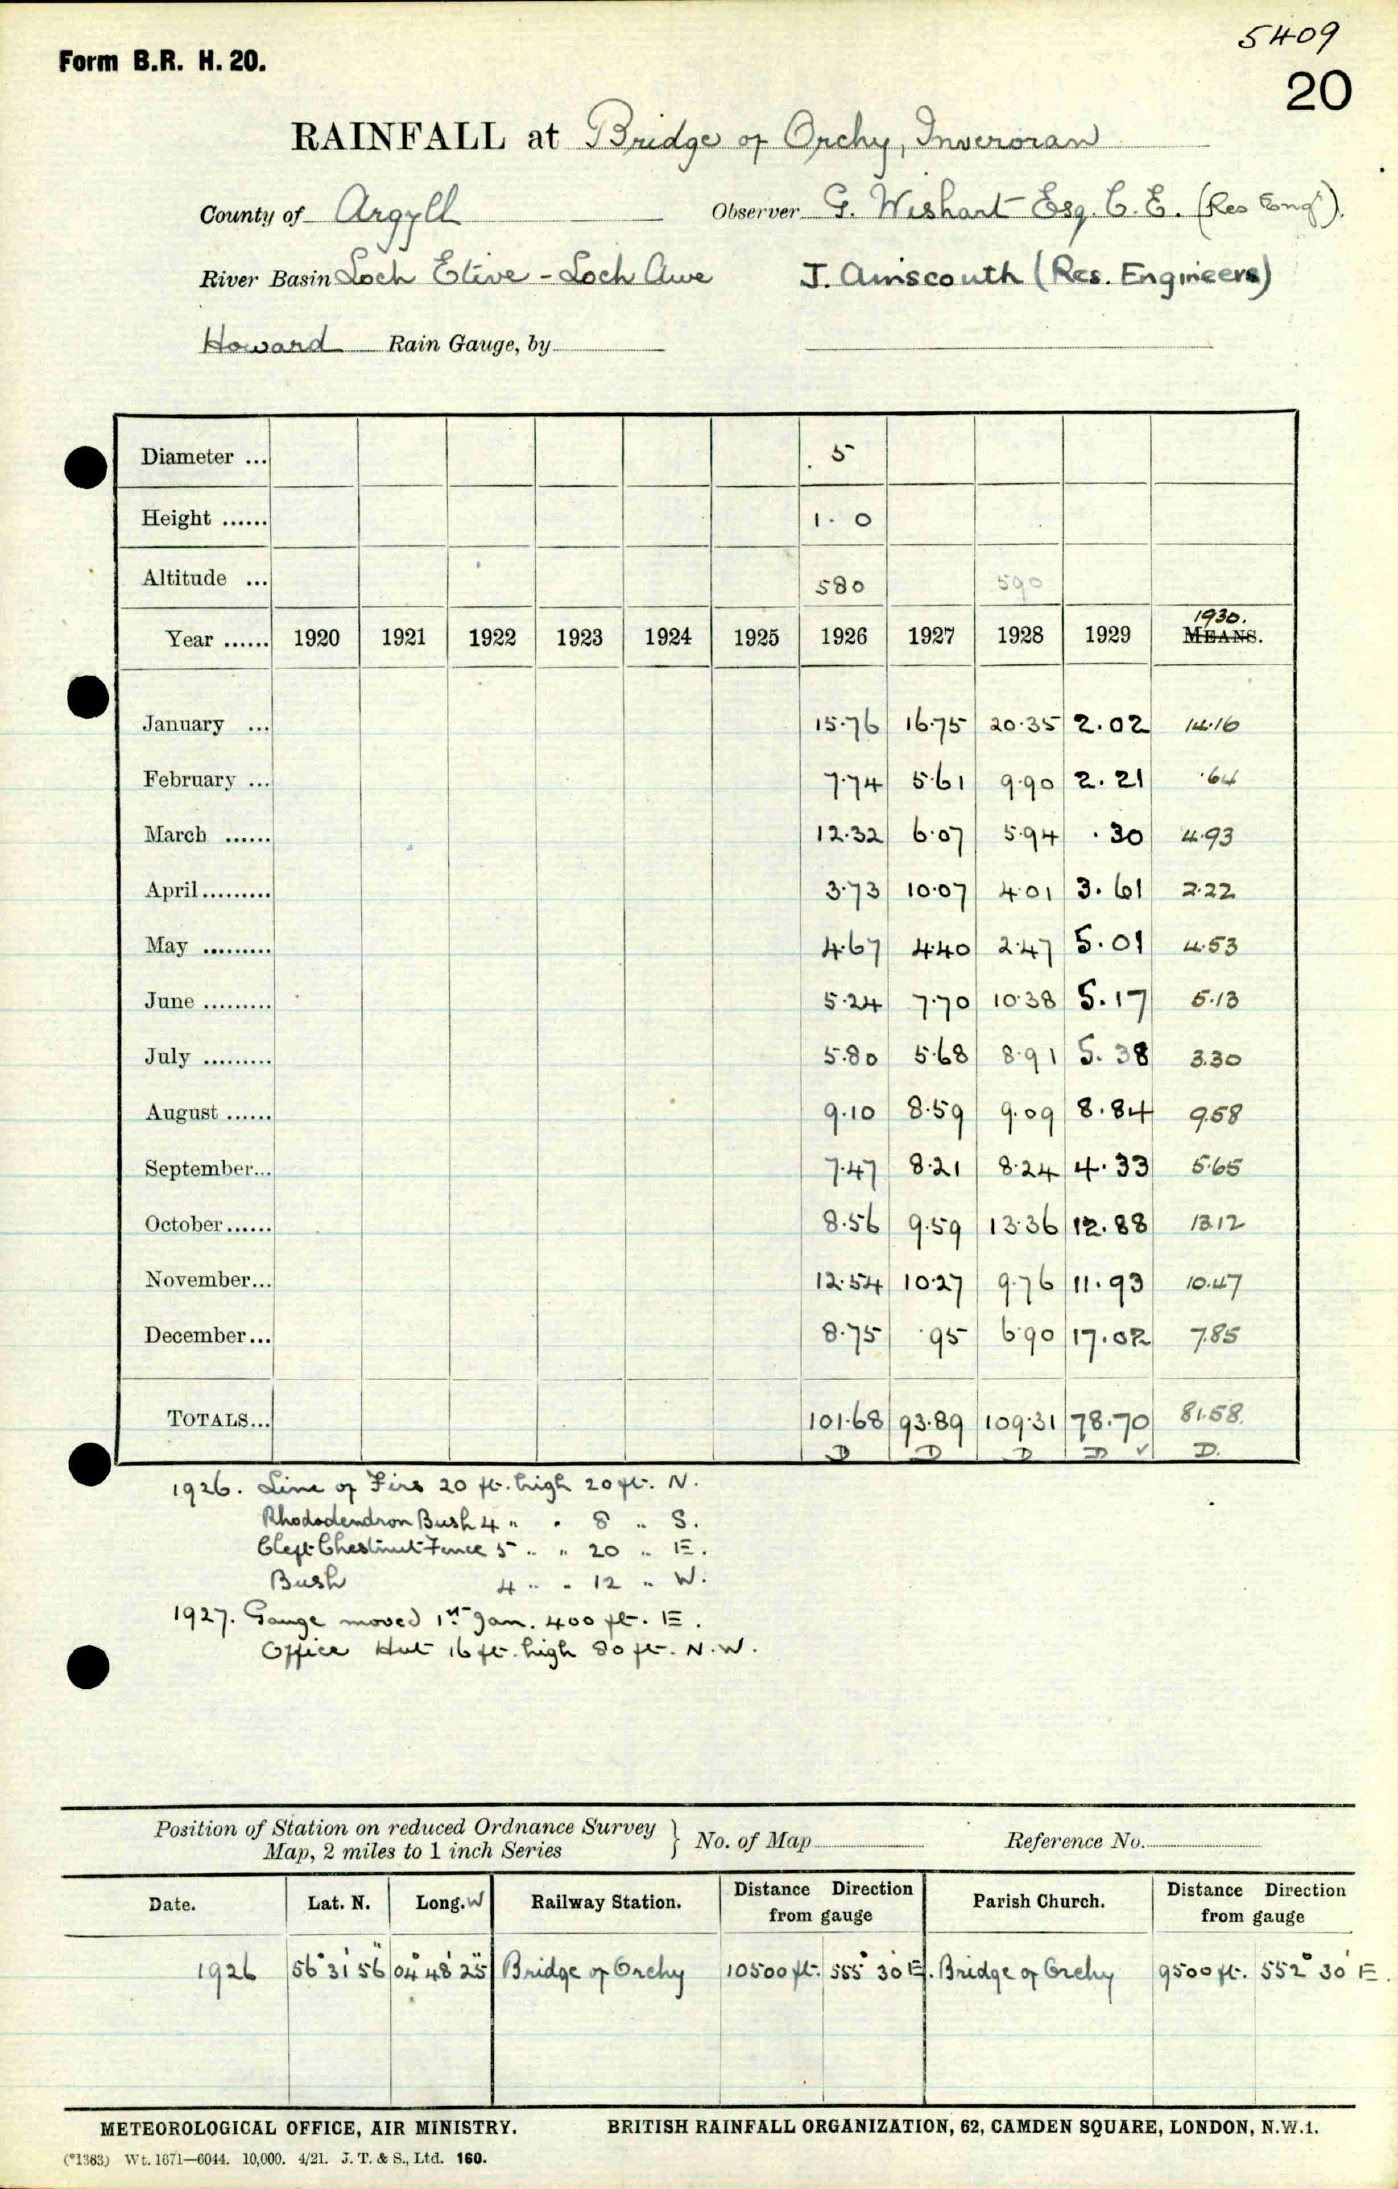 5409
Form B.R. H. 20.
20
RAINFALL at Bridge of Orchy, Inveroran
County of Argyll Observer G. Wishart Esq. C.E. (Res Engr).
River Basin Loch Etive - Loch Awe J. Ainscouth (Res. Engineers)
Howard Rain Gauge, by
Diameter ... 5
Height ...... 1. 0
Altitude ... 580 590
Year ...... 1920 1921 1922 1923 1924 1925 1926 1927 1928 1929 1930. MEANS.
January ... 15.76 16.75 20.35 2.02 14.16
February ... 7.74 5.61 9.90 2.21 .64
March ...... 12.32 6.07 5.94 .30 4.93
April ......... 3.73 10.07 4.01 3.61 2.22
May ......... 4.67 4.40 2.47 5.01 4.53
June ......... 5.24 7.70 10.38 5.17 5.13
July ......... 5.80 5.68 8.91 5.38 3.30
August ...... 9.10 8.59 9.09 8.84 9.58
September... 7.47 8.21 8.24 4.33 5.65
October ...... 8.56 9.59 13.36 12.88 13.12
November... 12.54 10.27 9.76 11.93 10.47
December... 8.75 .95 6.90 17.02 7.85
TOTALS... 101.68 93.89 109.31 78.70 81.58
D D D D ✓ D.
1926. Line of Firs 20 ft. high 20 ft. N.
Rhododendron Bush 4 " " 8 " S.
Cleft Chestnut Fence 5 " " 20 " E.
Bush 4 " " 12 " W.
1927. Gauge moved 1st Jan. 400 ft. E.
Office Hut 16 ft. high 80 ft. N.W.
Position of Station on reduced Ordnance Survey
Map, 2 miles to 1 inch Series } No. of Map Reference No.
Date. Lat. N. Long. W Railway Station. Distance Direction from gauge Parish Church. Distance Direction from gauge
1926 56° 31' 56" 04° 48' 25" Bridge of Orchy 10500 ft. S55° 30' E. Bridge of Orchy 9500 ft. S52° 30' E.
METEOROLOGICAL OFFICE, AIR MINISTRY. BRITISH RAINFALL ORGANIZATION, 62, CAMDEN SQUARE, LONDON, N.W.1.
(*1383) Wt. 1671—6044. 10,000. 4/21. J. T. & S., Ltd. 160.